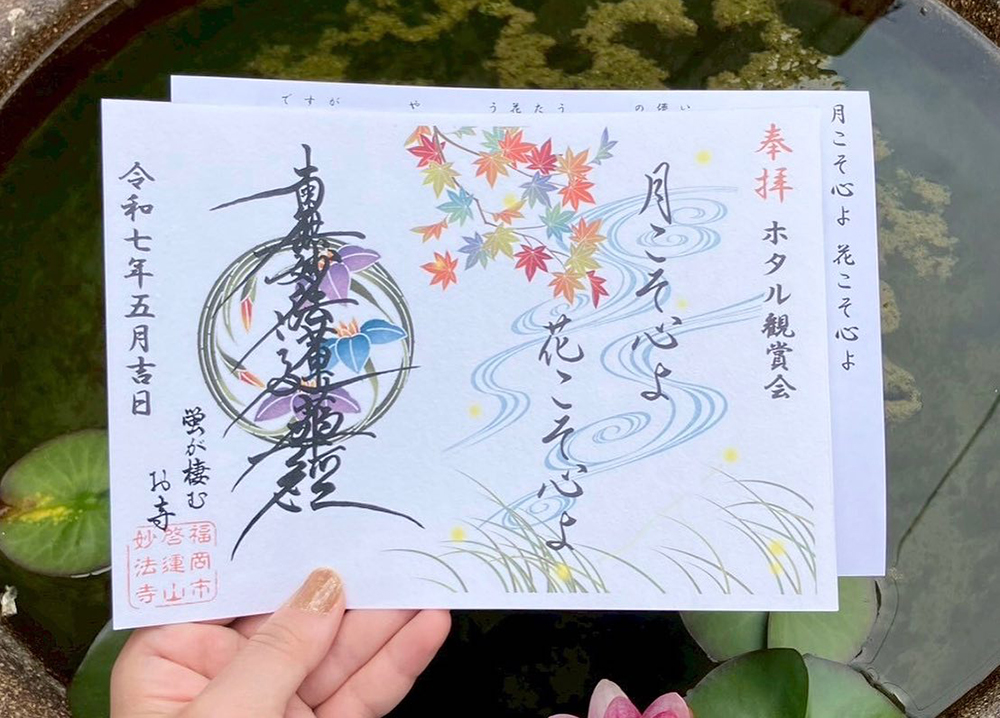 奉拝
ホタル観賞会
月こそ心よ
花こそ心よ
南無妙法蓮華経
令和七年五月吉日
蛍が棲む
お寺
福岡市
啓運山
妙法寺
月こそ心よ 花こそ心よ